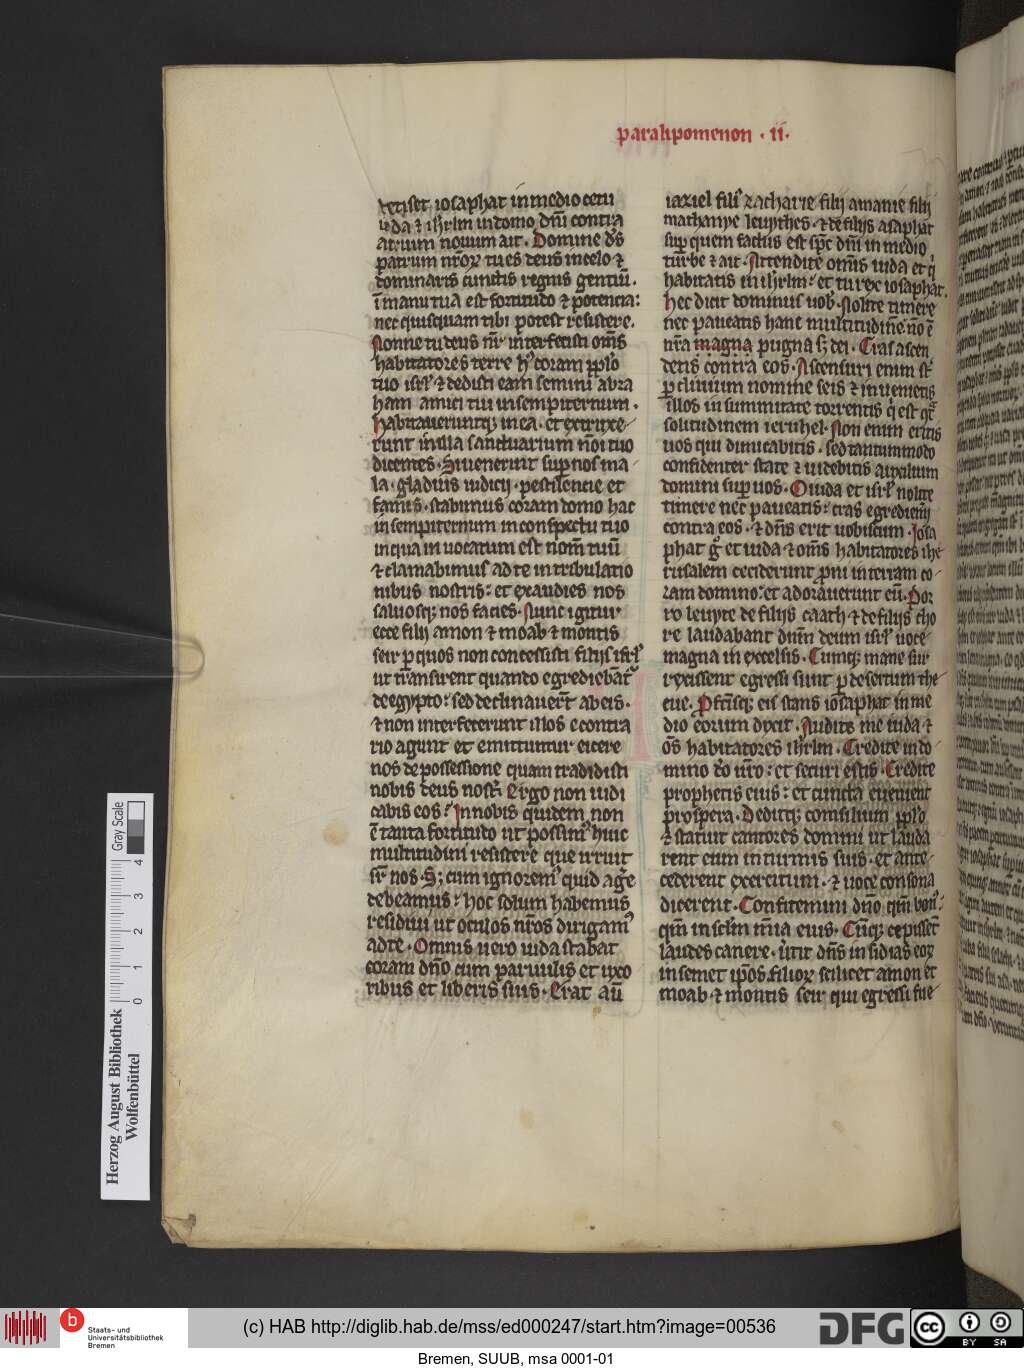 paralipomenon · ii·
tetisset iosaphat in medio cetu
iuda ⁊ ihrlm in domo dn̄i contra
atrium nouum ait · Domine ds̄
patrum nr̄oꝝ tu es deus in celo ⁊
dominaris cunctis regnis gentiū ·
ī manu tua est fortitudo ⁊ potencia:
nec quisquam tibi potest resistere ·
Nonne tu deus nr̄ interfecisti oms̄
habitatores terre hꝰ coram pplo
tuo isrl̓ ⁊ dedisti eam semini abra
ham amici tui in sempiternum ·
habitaueruntqꝫ in ea · et extruxe-
runt in illa sanctuarium noi tuo
dicentes · Si uenerint sup nos ma
la · gladius iudicij · pestilencie et
famis · stabimus coram domo hac
in sempiternum in conspectu tuo
in qua inuocatum est nom̄ tuū
⁊ clamabimus ad te in tribulatio
nibus nostris: et exaudies nos
saluosqꝫ nos facies · Nunc igitur
ecce filij amon ⁊ moab ⁊ montis
seir p quos non concessisti filijs isrl̓
ut transirent quando egrediebāt᷑
de egypto: sed declinauert̄ ab eis ·
⁊ non interfecerunt illos e contra
rio agunt et emittuntur eicere
nos de possessione quam tradidisti
nobis deus nost̄ Ergo non iudi
cabis eos: In nobis quidem non
ē tanta fortitudo ut possimꝰ huic
multitudini resistere que irruit
sr̄ nos · S; cum ignoremꝰ quid age̅
debeamus: hoc solum habemus
residui ut oculos nr̄os dirigamꝰ
ad te · Omnis uero iuda stabat
coram dn̄o cum paruulis et uxo
ribus et liberis suis · Erat aū
iaziel filiꝰ zacharie filij amanie filij
mathanye leuythes · ⁊ de filijs asaphat
sup quem factus est spc̄ dn̄i in medio
turbe ⁊ ait · Attendite oms̄ iuda et q̇
habitatis in ihrlm: et tu rex iosaphat ·
hec dicit dominus uob̄ · Nolite timere
nec paueatis hanc multitudinē nō ē
nr̄a magna pugna s; dei · Cras ascen
detis contra eos · Ascensuri enim st̄
p cliuium nomine seis ⁊ inuenietis
illos in summitate torrentis q̇ est qt̄
solitudinem ieruhel · Non enim eritis
uos qui dimicabitis · sed tantummodo
confidenter state ⁊ uidebitis auxilium
domini sup uos · O iuda et isrl̓ nolite
timere nec paueatis: cras egrediemī
contra eos · ⁊ dn̄s erit uobiscum · Iosa
phat g̊ et iuda ⁊ oms̄ habitatores ihe-
rusalem ceciderunt proni in terram co-
ram domino: et adorauerunt eū · Por
ro leuyte de filijs caath ⁊ de filijs cho
re laudabant dnm̄ deum isrl̓ uoce
magna in excelsis · Cumqꝫ mane sur
rexissent egressi sunt p desertum the-
cue · Pfctisqꝫ eis stans iosaphat in me
dio eorum dyxit · Audite me iuda ⁊
os̄ habitatores ihr̄lm · Credite in do-
mino do uro: et securi estis · Credite
prophetis eius: et cuncta euenient
prospera · Deditqꝫ consilium pplo
⁊ statuit cantores domini ut lauda
rent eum in turmis suis · et ante-
cederent exercitum · ⁊ uoce consona
dicerent · Confitemini dn̄o qm̄ bonꝰ ·
qm̄ in sclm̄ mia eius · Cūqꝫ cepissēt
laudes canere · ūtit dn̄s insidias eoꝝ
in semet ipos filioꝝ scilicet amon et
moab · ⁊ montis seir qui egressi fue-
Herzog August Bibliothek
Wolfenbüttel
Gray Scale
0 1 2 3 4
b Staats- und
Universitätsbibliothek
Bremen
(c) HAB http://diglib.hab.de/mss/ed000247/start.htm?image=00536
DFG
cc BY SA
Bremen, SUUB, msa 0001-01